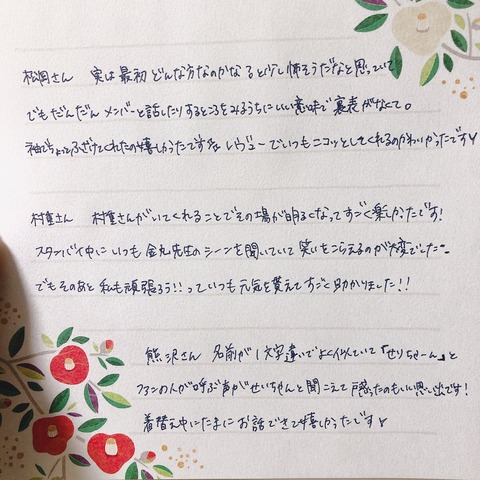 松岡さん 実は最初どんな方なのかなぁと少し怖そうだなと思っていて
でもだんだんメンバーと話したりするところをみるうちにいい意味で裏表がなくて。
袖でちょっとふざけてくれたの嬉しかったです レヴューでいつもニコッとしてくれるのかわいかったです
村重さん 村重さんがいてくれることでその場が明るくなってすごく楽しかったです!
スタンバイ中にいつも金丸先生のシーンを聞いていて笑いをこらえるのが大変でした
でもそのあと私も頑張ろう!!っていつも元気を貰えてすごく助かりました!!
熊沢さん 名前が1文字違いでよく似ていて「せりちゃーん」と
ファンの人が呼ぶ声がせいちゃんと聞こえて 焦ったのもいい思い出です!
着替え中にたまにお話できて嬉しかったです